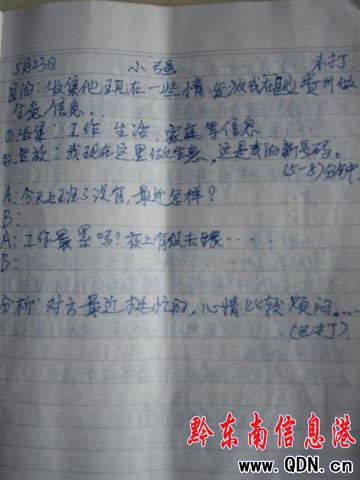 5月23日 小强 未打.
目的：收集他现在一些情 发放我在贵州做
生意信息..
①收集：工作 生活 家庭 等信息
②发放：我现在这里做生意，这是我的新号码。
(5-8)分钟.
A：今天上班了没有，最近怎样？
B：
A：工作最累吗？晚上有没去
B：
分析：对方最近挺忙的，心情比较烦闷....
(已打)
黔东南信息港
www.QDN.cn